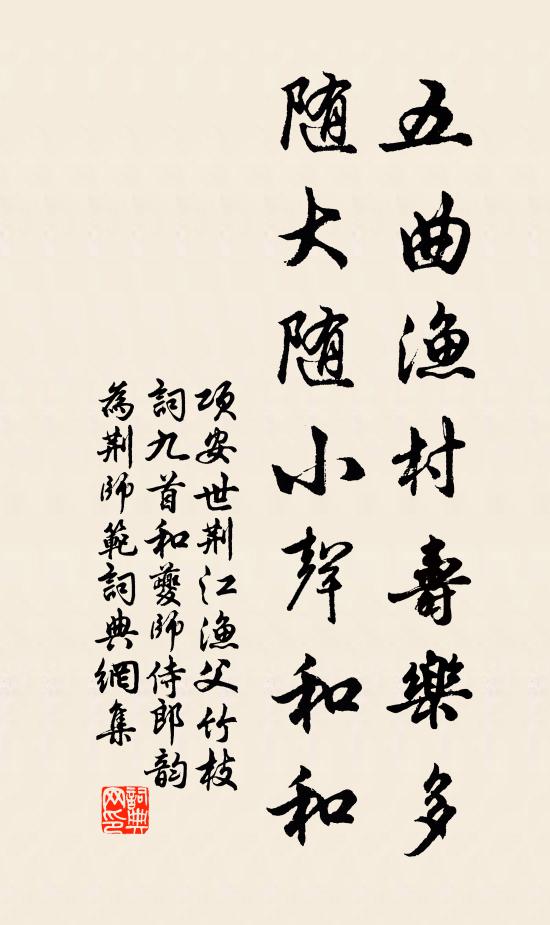 五曲漁村壽樂多
随大随小聲和和
项安世荆江漁父竹枝
詞九首和夔師侍郎韵
為荆師範詞典網集
詞典
网印